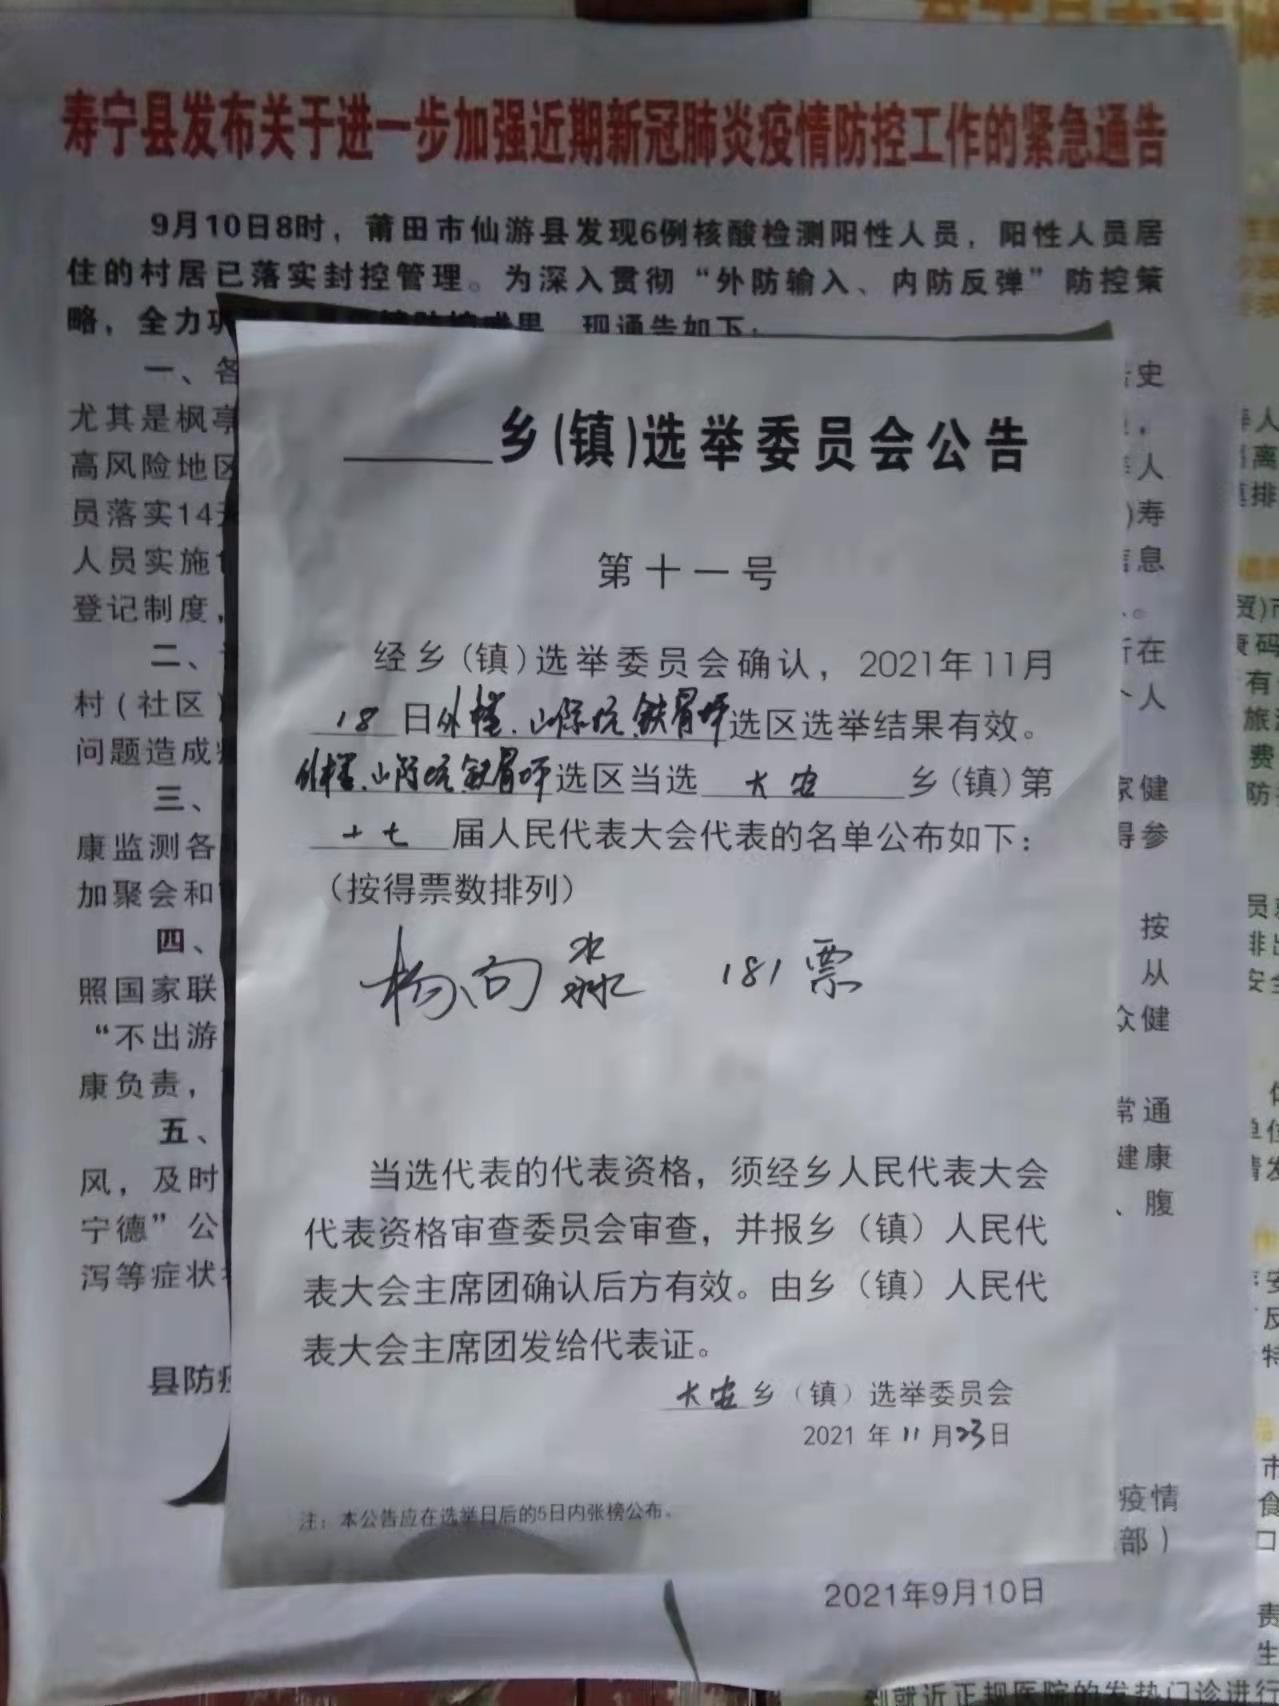 寿宁县发布关于进一步加强近期新冠肺炎疫情防控工作的紧急通告
9月10日8时，莆田市仙游县发现6例核酸检测阳性人员，阳性人员居
住的村居已落实封控管理。为深入贯彻“外防输入、内防反弹”防控策
略，全力巩 防控成果，现通告如下：
一、各
尤其是枫亭
高风险地区
员落实14天
人员实施
登记制度，
二、
村（社区）
问题造成
三、
康监测各
加聚会和
四、
照国家联
“不出游
康负责，
五、
风，及时
宁德”公
泻等症状
县防疫
史
，
人
)寿
信息
。
所在
个人
家健
得参
按
从
众健
常通
健康
、腹
疫情
部）
2021年9月10日
乡(镇)选举委员会公告
第十一号
经乡(镇)选举委员会确认，2021年11月
18日外楼、山 坑、铁骨坪选区选举结果有效。
外楼、山 坑、铁骨坪选区当选大安乡(镇)第
十七届人民代表大会代表的名单公布如下：
（按得票数排列）
杨向淼 181票
当选代表的代表资格，须经乡人民代表大会
代表资格审查委员会审查，并报乡（镇）人民代
表大会主席团确认后方有效。由乡（镇）人民代
表大会主席团发给代表证。
大安乡（镇）选举委员会
2021年11月23日
注：本公告应在选举日后的5日内张榜公布。
到就近正规医院的发热门诊进行